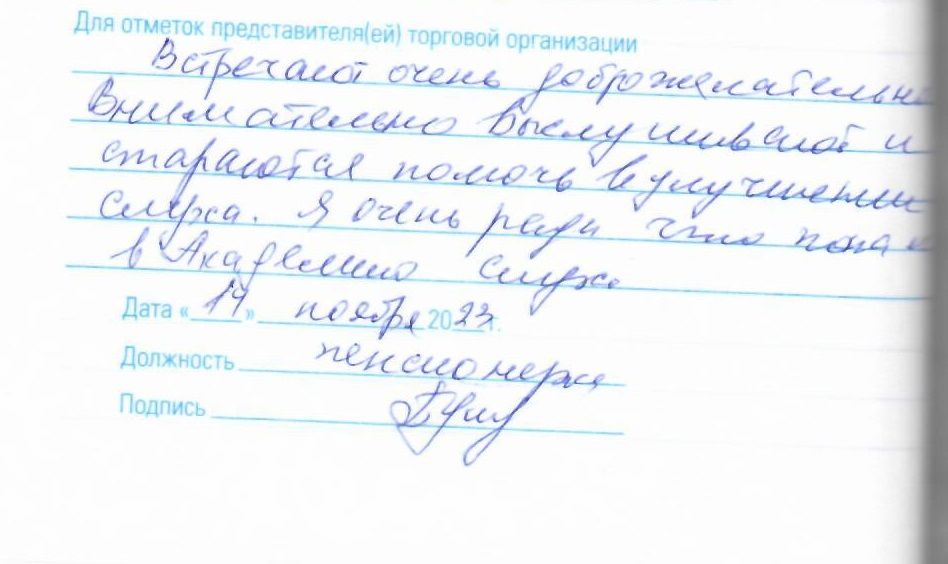 Для отметок представителя(ей) торговой организации
Встречают очень доброжелательно
внимательно выслушивают и
стараются помочь в улучшении
слуха. Я очень рада что попа
в Академию слуха
Дата «14» ноября 2023 г.
Должность пенсионерка
Подпись